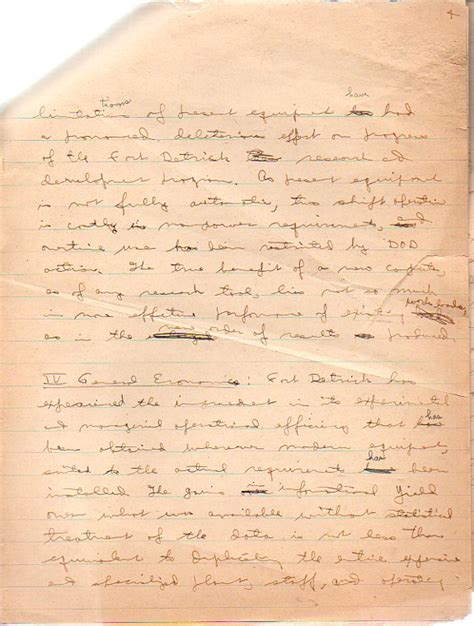 4
tions have
limitations of present equipment had
a pronounced, deleterious effect on progress
of the Fort Detrick research and
development program. As present equipment
is not fully automatic, two shift operation
is costly in manpower requirements, and
overtime use has been restricted by DOD
action. The true benefit of a new computer,
as of any research tool, lies not so much
workloads,
in more effective performance of existing
as in the new order of results produced.
IV General Economics: Fort Detrick has
experienced the improvement in its experimental
and managerial operational efficiency that has
been obtained wherever modern equipment,
has
suited to the actual requirement been
installed. The gain in informational yield
over what was available without statistical
treatment of the data is not less than
equivalent to duplicating the entire expensive
and specialized plant, staff, and operating